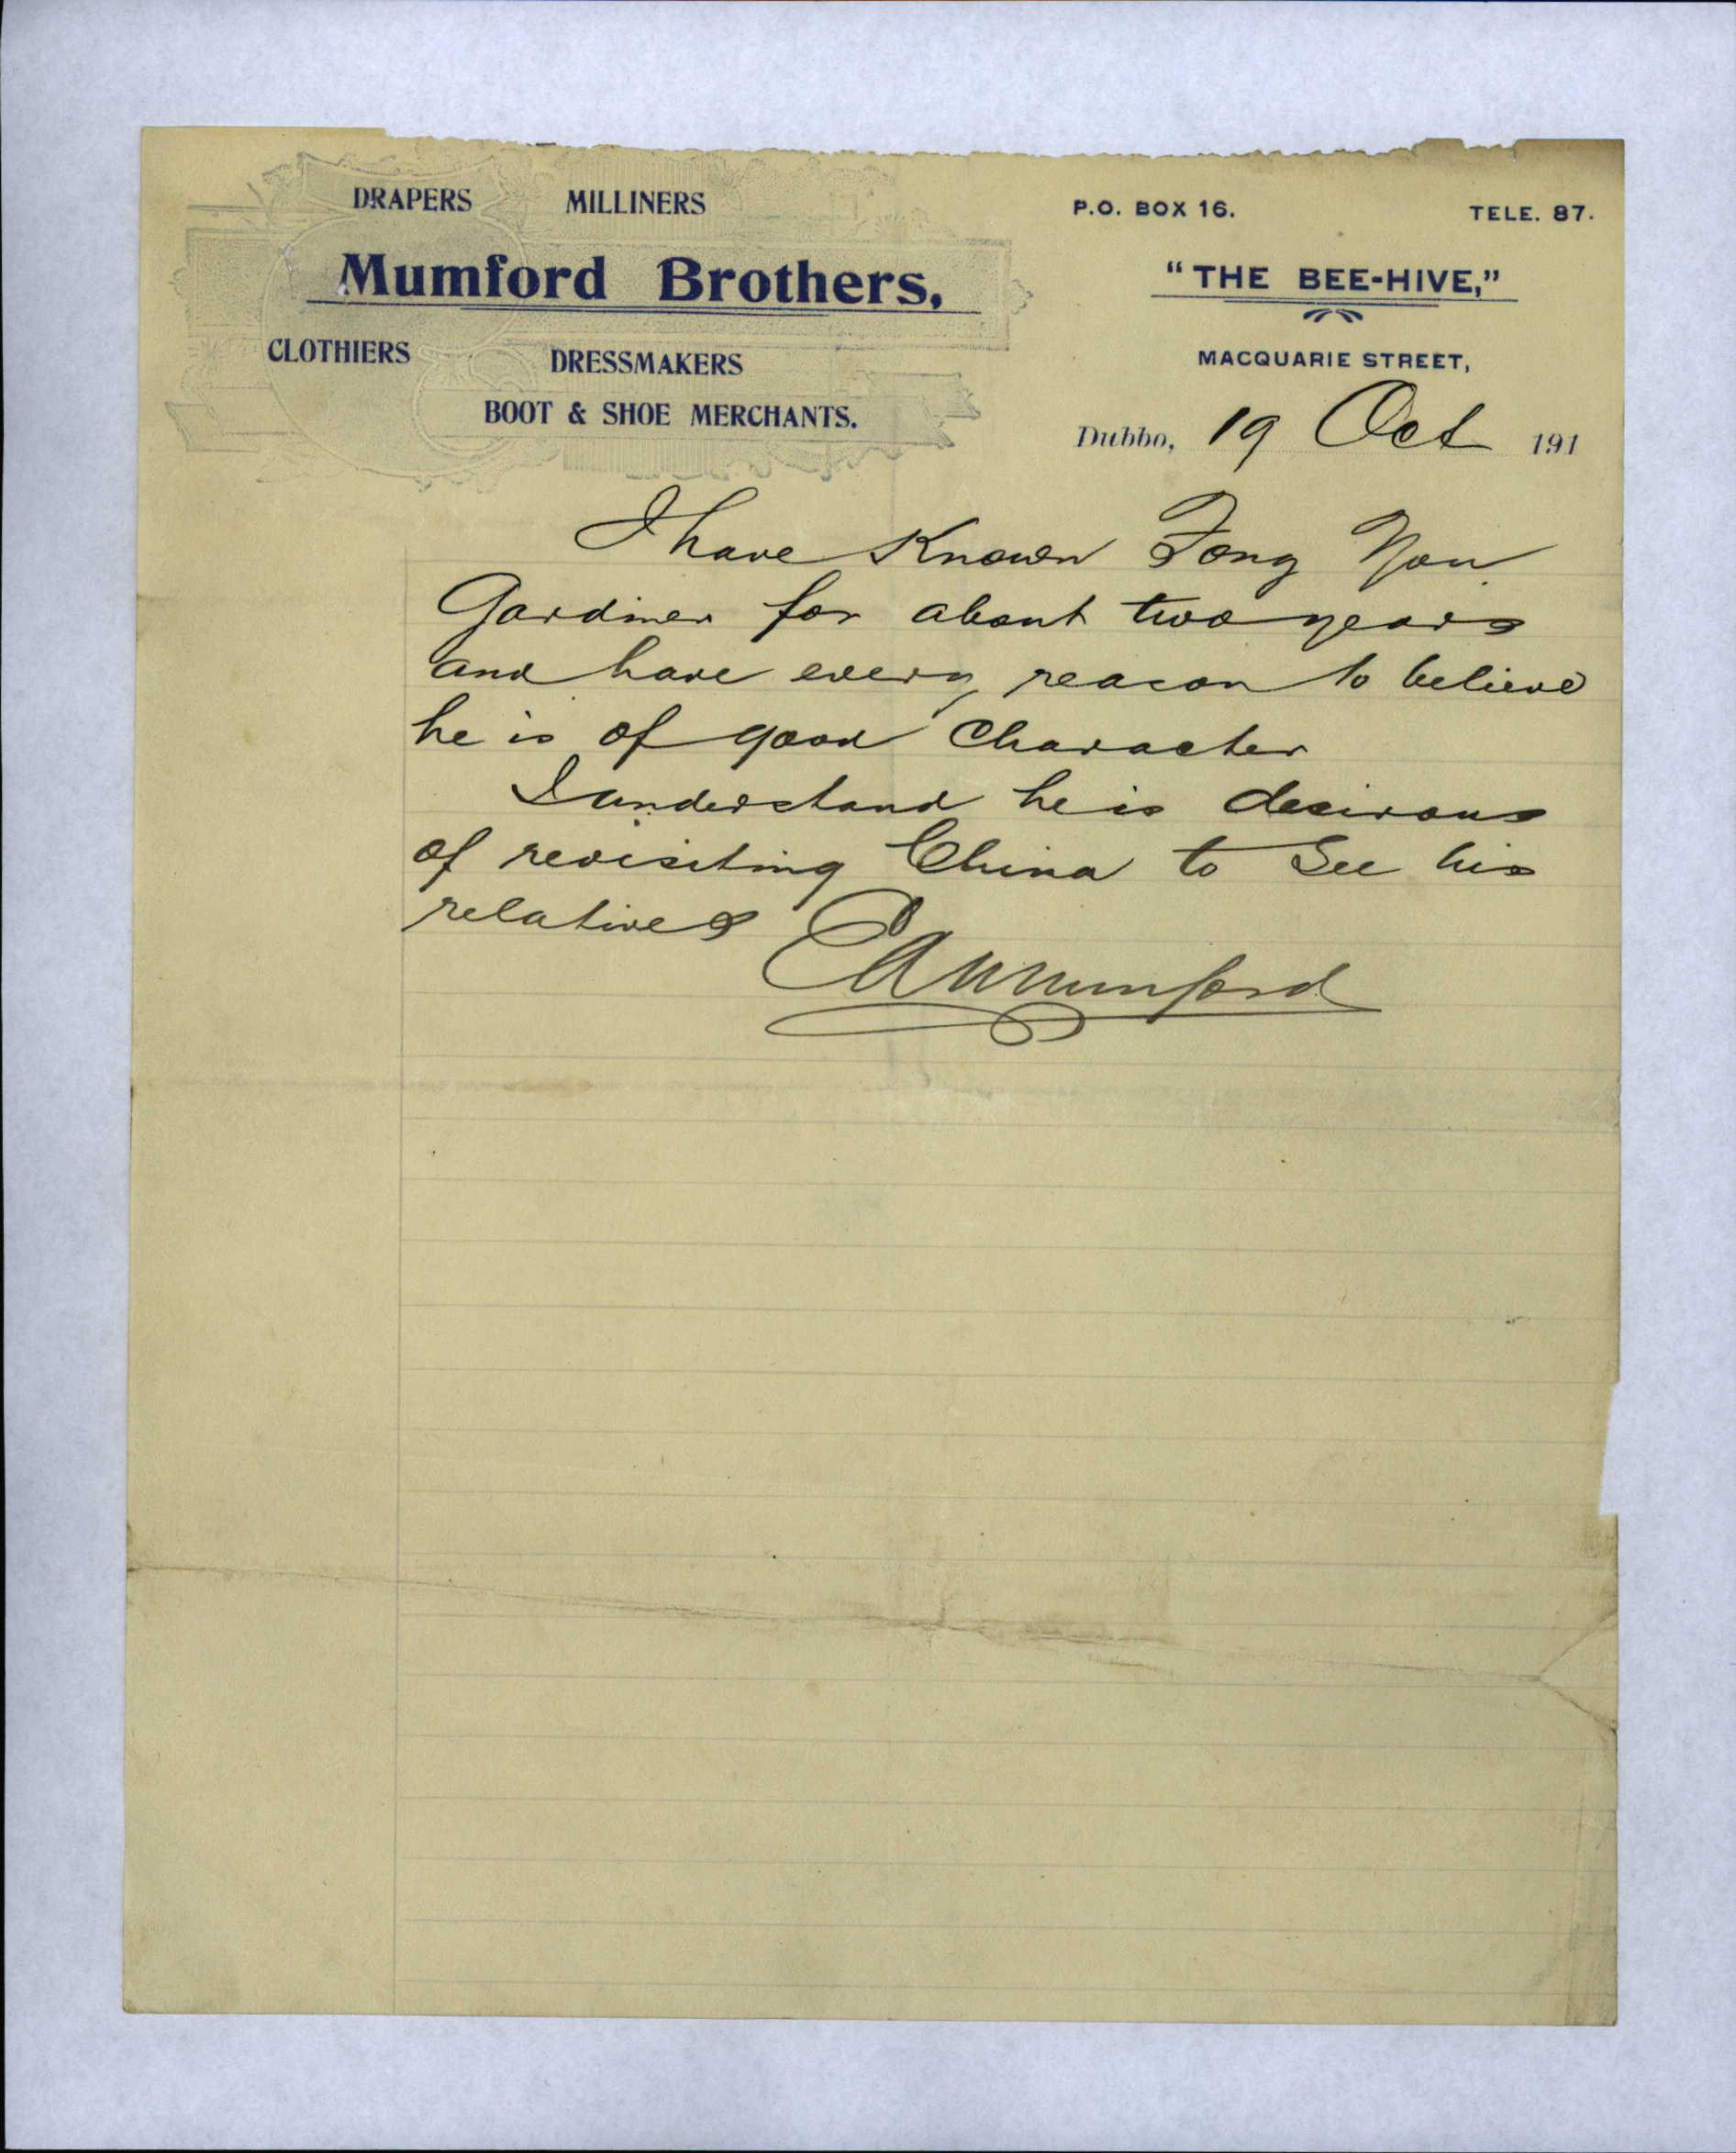 DRAPERS MILLINERS
Mumford Brothers,
CLOTHIERS DRESSMAKERS
BOOT & SHOE MERCHANTS.
P.O. BOX 16. TELE. 87.
"THE BEE-HIVE,"
MACQUARIE STREET,
Dubbo, 19 Oct 191
I have Known Fong You
Gardiner for about two years
and have every reason to believe
he is of good Character
I understand he is desirous
of revisiting China to See his
relatives
Mumford